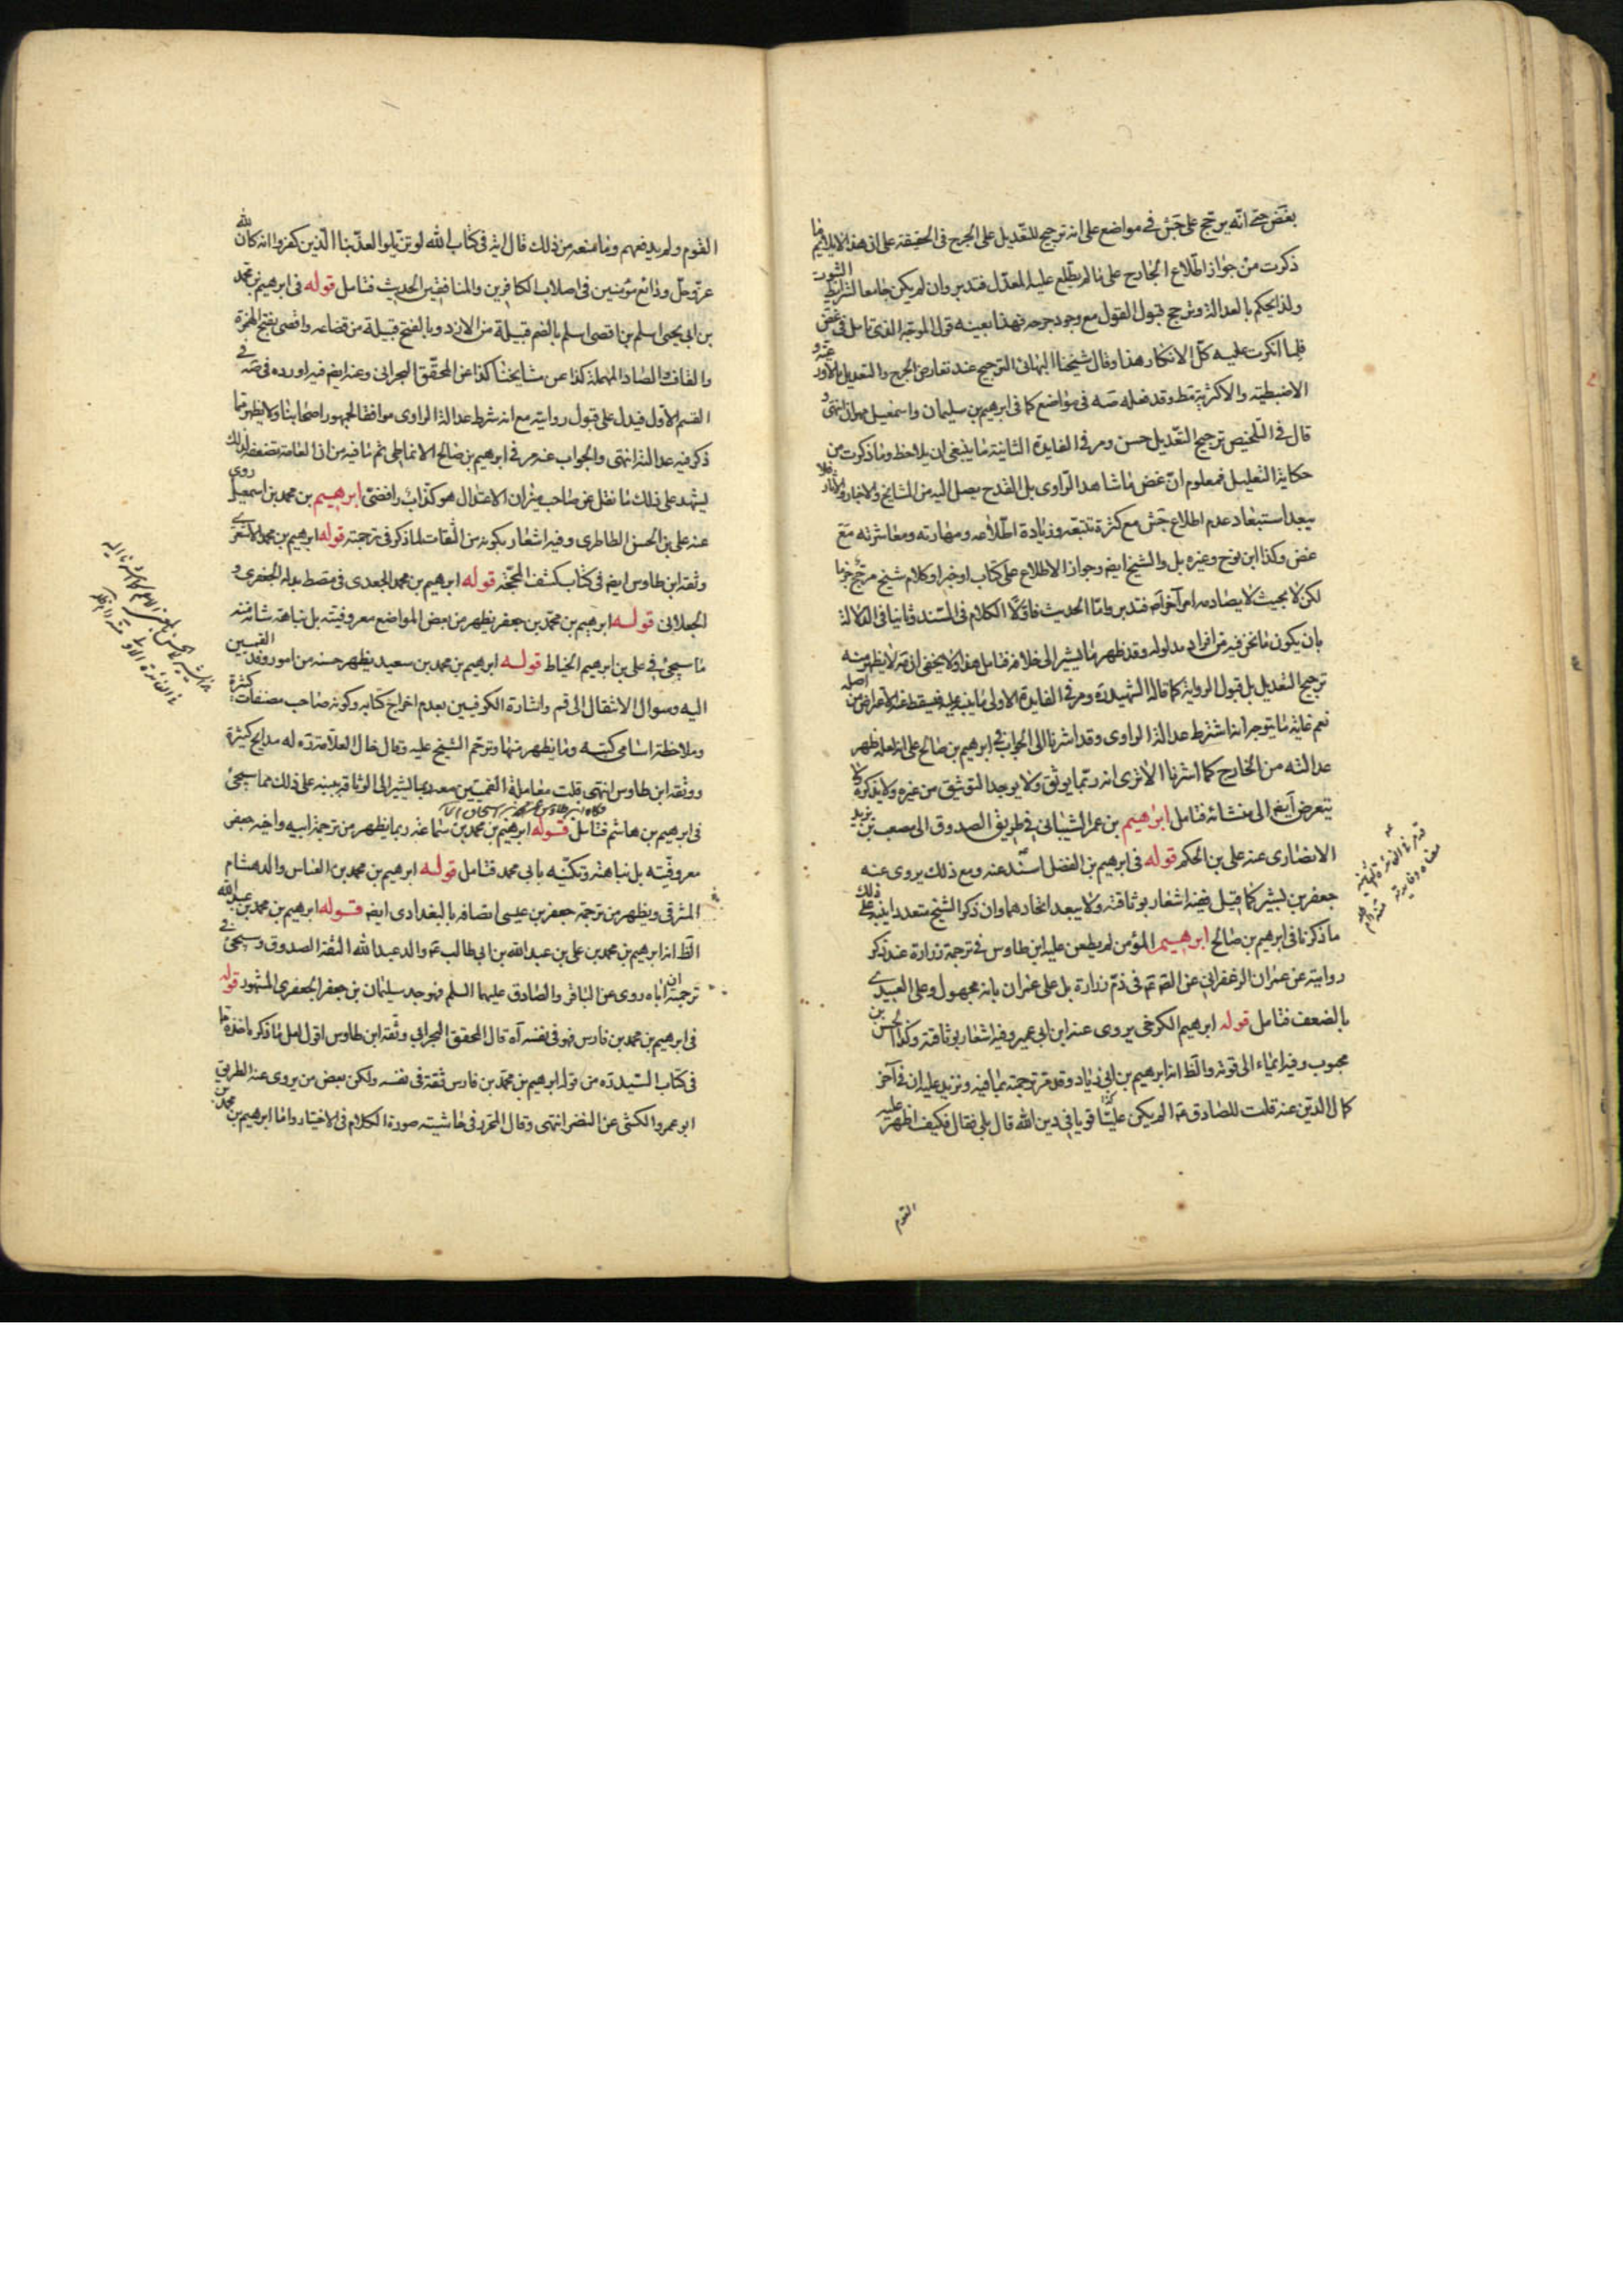 بغض حتى انه يرجح على جش في مواضع على انه ترجيح للتعديل على الجرح في الحقيقة على ان هذا لايلايم ما
ذكرت من جواز اطلاع الجارح على ما لم يطلع عليه المعدل فتدبر وان لم يكن جامعا لشرايط الثبوت
ولذا يحكم بالعدالة وترجح قبول القول مع وجود جرحه فهذا بعينه قول الموجه الذى تامل في غض
فلما انكرت عليه كل الانكار هذا وقال شيخنا البهائى الترجيح عند تعارض الجرح والتعديل بالاورعية و
الاضبطية والاكثرية فقط وقد فعله صه في مواضع كما في ابرهيم بن سليمان واسمعيل بن مهران انتهى و
قال في التلخيص ترجيح التعديل حسن ومر في الفايدة الثانية ما ينبغى ان يلاحظ وما ذكرت من
حكاية التعليل فمعلوم ان غض ما شاهد الراوى بل القدح يصل اليه من المشايخ والاخبار والاثار فلا
يبعد استبعاد عدم اطلاع جش مع كثرة تتبعه وزيادة اطلاعه ومهارته ومعاشرته مع
غض وكذا ابن نوح وغيره بل والشيخ ايضه وجواز الاطلاع على كتاب او خبر او كلام شيخ مرجح جزما
لكن لا بحيث لا يصادمه امر آخر آه فتدبر واما الحديث فاولا الكلام في السند وثانيا في الدلالة
بان يكون ما نحن فيه من افراد مدلوله وقد ظهر ما يشير الى خلافه فتامل هذا ولا يخفى ان صه لا يظهر منه
ترجيح التعديل بل قبول الرواية كما قاله الشهيد ره ومر في الفايدة الاولى ما ينبه عليه فيسقط عنه الاعتراض من اصله
نعم غاية ما يتوجه انه اشترط عدالة الراوى وقد اشرنا الى الجواب في ابرهيم بن صالح على انه لعله ظهر
عدالته من الخارج كما اشرنا الا ترى انه ربما يوثق ولا يوجد التوثيق من غيره ولا يذكره ولا
يتعرض ايضه الى منشائه فتامل ابرهيم بن عمر الشيبانى في طريق الصدوق الى مصعب بن يزيد
الانصارى عنه على بن الحكم قوله في ابرهيم بن الفضل اسند عنه ومع ذلك يروى عنه
جعفر بن بشير كما قيل ففيه اشعار بوثاقته ولا يبعد اتحادهما وان ذكر الشيخ متعددا ينبه على ذلك
ما ذكرنا في ابرهيم بن صالح ابرهيم المؤمن لم يطعن عليه ابن طاوس في ترجمة زرارة عند ذكر
روايته عن عمران الزعفرانى عن الصه في ذم زرارة بل على عمران بانه مجهول وعلى العبيدى
بالضعف فتامل قوله ابرهيم الكرخى يروى عنه ابن ابى عمير وفيه اشعار بوثاقته وكذا الحسن بن
محبوب وفيه ايماء الى قوته والظ انه ابرهيم بن ابى زياد وقد مر ترجمته بما فيه ونزيد عليه ان في آخر
كمال الدين عنه قلت للصادق ع الم يكن على ع قويا في دين الله قال بلى فقال فكيف ظهر عليه
القوم
القوم ولم يدفعهم وما منعه من ذلك قال اية في كتاب الله لو تزيلوا لعذبنا الذين كفروا انه كان لله
عز وجل ودائع مؤمنين في اصلاب الكافرين والمنافقين الحديث فتامل قوله في ابرهيم بن محمد
بن ابى يحيى اسلم بن اقصى اسلم بالضم قبيلة من الازد وبالفتح قبيلة من قضاعه واقصى بفتح الهمزة
والقاف والصاد المهملة كذا عن مشايخنا كذا عن المحقق البحرانى وعنه ايضه فيه اورده في صه في
القسم الاول فيدل على قبول روايته مع انه شرط عدالة الراوى موافقا لجمهور اصحابنا ولا يظهر مما
ذكر فيه عدالته انتهى والجواب عنه مر في ابرهيم بن صالح الانماطى ثم ما فيه من ان العامة تضعفه لذلك
يشهد على ذلك ما نقل عن صاحب ميزان الاعتدال هو كذاب رافضى ابرهيم بن محمد بن اسمعيل روى
عنه على بن الحسن الطاطرى وفيه اشعار بكونه من الثقات لما ذكر في ترجمته قوله ابرهيم بن محمد الاشعرى
وثقه ابن طاوس ايضه في كتاب كشف المحجة قوله ابرهيم بن محمد الجعدى في مصط بدله الجعفرى و
الجعلانى قوله ابرهيم بن محمد بن جعفر يظهر من بعض المواضع معروفيته بل نباهة شانه منه
ما سيجئ في على بن ابرهيم الخياط قوله ابرهيم بن محمد بن سعيد يظهر حسنه من امور وفد القميين
اليه وسوال الانتقال الى قم واشارة الكوفيين بعدم اخراج كتابه وكونه صاحب مصنفات كثيرة
وملاحظة اسامى كتبه وما يظهر منها وترحم الشيخ عليه وقال خال العلامة ره له مدايح كثيرة
ووثقه ابن طاوس انتهى قلت معاملة القميين معه ربما يشير الى الوثاقة ينبه على ذلك مما سيجئ
في ابرهيم بن هاشم فتامل قوله ابرهيم بن محمد بن سماعة ربما يظهر من ترجمة ابيه واخيه جعفر
معروفيته بل نباهته وتكنيه بابى محمد فتامل قوله ابرهيم بن محمد بن العباس والد هشام
المشرقى ويظهر من ترجمة جعفر بن عيسى اتصافه بالبغدادى ايضه قوله ابرهيم بن محمد بن عبد الله
الظ انه ابرهيم بن محمد بن على بن عبد الله بن ابى طالب عم والد عبد الله الثقة الصدوق وسيجئ في
ترجمته ان اباه روى عن الباقر والصادق عليهما السلم فهو جد سليمان بن جعفر الجعفرى المشهور قوله
في ابرهيم بن محمد بن فارس فهو في نفسه آه قال المحقق البحرانى وثقه ابن طاوس اقول لعل ما ذكر ماخذه ما
في كتاب السيد ره من قوله ابرهيم بن محمد بن فارس ثقة في نفسه ولكن بعض من يروى عنه الطريق
ابو عمرو الكشى عن النضر انتهى وقال المحرر في حاشيته صورة الكلام في الاختيار واما ابرهيم بن محمد بن